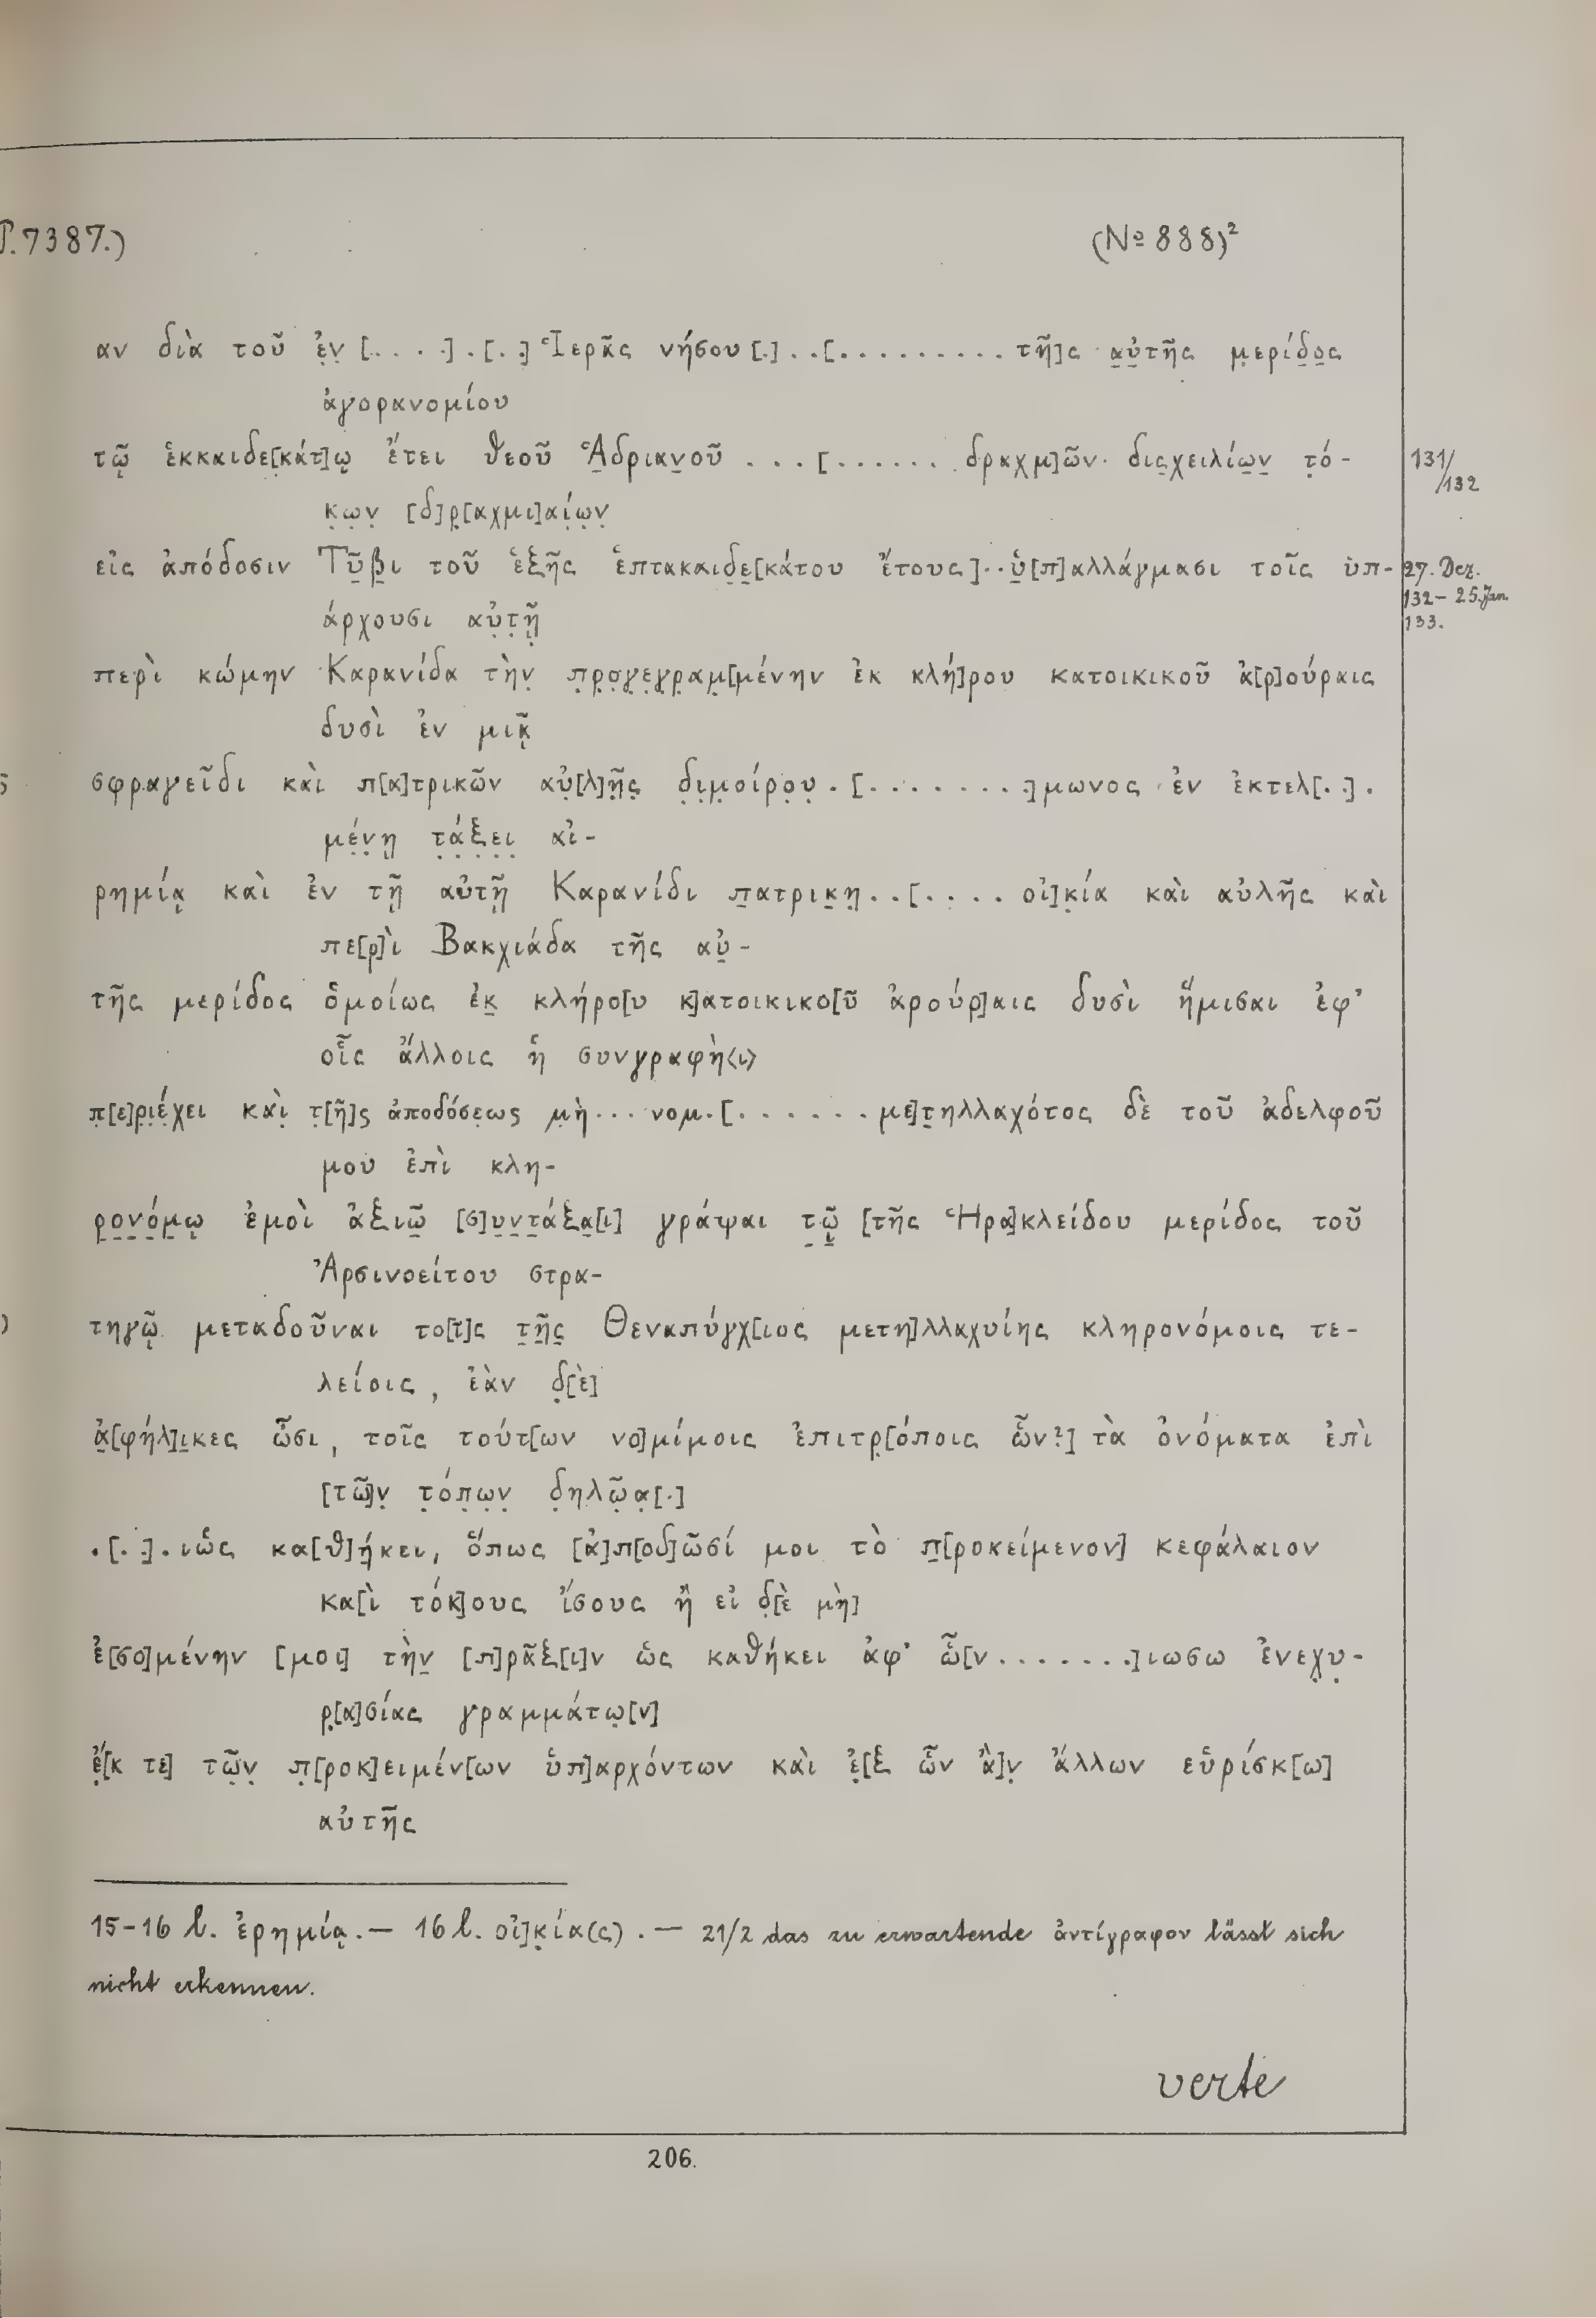 P. 7387.)
(No 888)²
αν διὰ τοῦ ἐ̣ν̣ [. . . .] . [. .] Ἱερᾶς νήσου [.] . . [. . . . . . . . . . τῆ]ς α̣ὐ̣τῆς μ̣ερίδ̣ο̣ς
ἀγορανομίου
τῷ ἑκκαιδε[κάτ]ῳ ἔτει θεοῦ Ἁ̣δριαν̣οῦ . . . [. . . . . . . δραχμ]ῶν δισ̣χειλίω̣ν̣ τ̣ό-
131/
/132
κ̣ω̣ν̣ [δ]ρ̣[αχμι]αί̣ω̣ν̣
εἰς ἀπόδοσιν Τῦ̣β̣ι τοῦ ἑξῆς ἑπτακαιδ̣ε̣[κάτου ἔτους] . . ὑ̣[π]αλλάγμασι τοῖς ὑπ-
27. Dez.
132 – 25. Jan.
133.
άρχουσι αὐ̣τ̣ῇ̣
περὶ κώμην Καρανίδα τὴν̣ π̣ρ̣ο̣γ̣ε̣γ̣ρ̣αμ̣[μένην ἐκ κλή]ρου κατοικικοῦ ἀ[ρ]ούραις
δυσὶ ἐν μιᾷ̣
5
σφραγεῖδι καὶ π[α]τρικῶν αὐ̣[λ]ῆ̣ς̣ δ̣ι̣μ̣οίρ̣ο̣υ̣ . [. . . . . . . . .]μωνος ἐν ἐκτελ[. .] .
μέ̣ν̣ῃ τ̣ά̣ξ̣ε̣ι̣ αἰ-
ρημίᾳ καὶ ἐν τῇ αὐτῇ Καρανίδι π̣ατρικ̣η̣ . . [. . . . οἰ]κ̣ία καὶ αὐλῆς καὶ
πε[ρ]ὶ Βακχιάδα τῆς αὐ̣-
τῆς μερίδος ὁμοίως ἐκ̣ κλήρο[υ κ]ατοικικο[ῦ ἀρούρ]αις δυσὶ ἥμισαι ἐφ’
οἷς ἄλλοις ἡ συνγραφὴ⟨ι⟩
π̣[ε]ρ̣ι̣έ̣χει καὶ̣ τ̣[ῆ]ς ἀποδόσε̣ως μ̣ὴ . . . νομ . [. . . . . . . με]τ̣ηλλαχότος δὲ τοῦ ἀδελφοῦ
μου ἐπὶ κλη-
ρ̣ο̣ν̣ό̣μ̣ῳ ἐμοὶ ἀξιῶ̣ [σ]υ̣ν̣τ̣άξα̣[ι] γράψαι τ̣ῷ̣ [τῆς Ἡρα]κλείδου μερίδος τοῦ
Ἀρσινοείτου στρα-
τηγῷ μεταδοῦναι το[ῖ]ς τ̣ῆ̣ς̣ Θεναπύγχ[ιος μετη]λλαχυίης κληρονόμοις τε-
λείοις, ἐὰν δ̣[ὲ]
ἀ̣[φήλ]ι̣κες ὦσι, τοῖς τούτ[ων νο]μίμοις ἐπιτρ̣[όποις ὧν?] τὰ ὀνόματα ἐπὶ
[τῶ]ν̣ τ̣ό̣π̣ω̣ν̣ δ̣ηλῶ̣α̣[.]
. [. .] . ιὡς κα[θ]ή̣κει, ὅπως [ἀ]π[οδ]ῶσί μοι τὸ π̣[ροκείμενον] κεφάλαιον
κα[ὶ τόκ]ους ἴσους ἢ εἰ δ̣[ὲ μὴ]
ἐ̣[σο]μένην [μοι] τὴν̣ [π]ρᾶξ[ι]ν ὡς καθήκει ἀφ’ ὧ[ν . . . . . . . .]ιωσω ἐνεχ̣υ̣-
ρ̣[α]σίας γραμμάτω̣[ν]
ἔ̣[κ τε] τῶ̣ν̣ π̣[ροκ]ειμέν[ων ὑπ]αρχόντων καὶ ἐ̣[ξ ὧν ἂ]ν̣ ἄλλων εὑρίσκ[ω]
αὐτῆς
15–16 l. ἐρημίᾳ. — 16 l. οἰ]κ̣ία(ς). — 21/2 das zu erwartende ἀντίγραφον lässt sich
nicht erkennen.
verte
206.